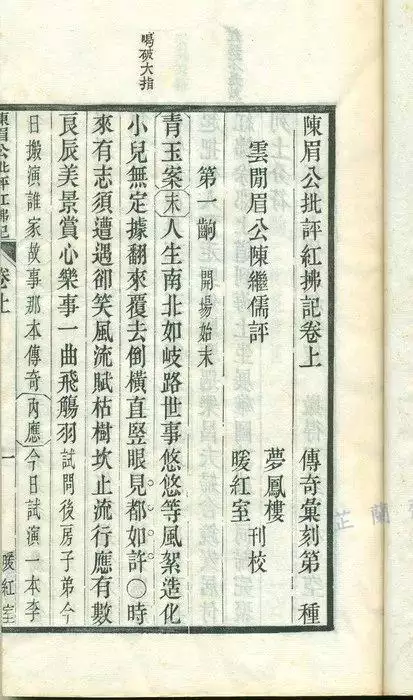 喝破大指
陳眉公批評紅拂記卷上
傳奇彙刻第 種
雲閒眉公陳繼儒評
夢鳳樓
暖紅室
刊校
第一齣 開場始末
青玉案〔末〕人生南北如岐路世事悠悠等風絮造化
小兒無定據翻來覆去倒橫直豎眼見都如許〇時
來有志須遭遇卻笑風流賦枯樹坎止流行應有數
良辰美景賞心樂事一曲飛觴羽試問後房子弟今
日搬演誰家故事那本傳奇〔內應〕今日試演一本李
陳眉公批評紅拂記
卷上
一
暖紅室
芷蘭